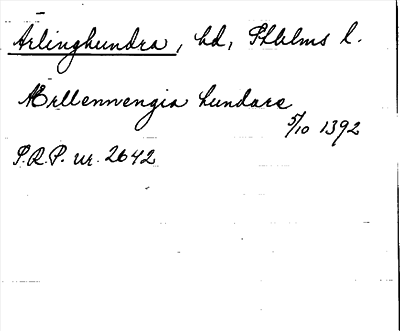 Ärlinghundra, hd, Sthlms l.
Ærllennengia hundare
5/10 1392
S.R.P. nr. 2642